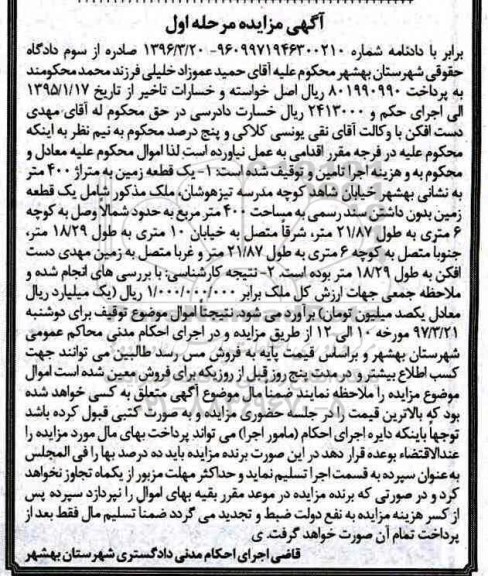 آگهی مزایده مرحله اول
برابر با دادنامه شماره ۹۶۰۹۹۷۱۹۴۶۳۰۰۲۱۰- ۱۳۹۶/۳/۲۰ صادره از سوم دادگاه
حقوقی شهرستان بهشهر محکوم علیه آقای حمید عموزاد خلیلی فرزند محمد محکومند
به پرداخت ۸۰۱۹۹۰۹۹۰ ریال اصل خواسته و خسارات تاخیر از تاریخ ۱۳۹۵/۱/۱۷
الی اجرای حکم و ۲۴۱۳۰۰۰ ریال خسارت دادرسی در حق محکوم له آقای مهدی
دست افکن با وکالت آقای نقی یونسی کلاکی و پنج درصد محکوم به نیم نظر به اینکه
محکوم علیه در فرجه مقرر اقدامی به عمل نیاورده است لذا اموال محکوم علیه معادل و
محکوم به و هزینه اجرا تامین و توقیف شده است: ۱- یک قطعه زمین به متراژ ۴۰۰ متر
به نشانی بهشهر خیابان شاهد کوچه مدرسه تیزهوشان، ملک مذکور شامل یک قطعه
زمین بدون داشتن سند رسمی به مساحت ۴۰۰ متر مربع به حدود شمالا وصل به کوچه
۶ متری به طول ۲۱/۸۷ متر، شرقاً متصل به خیابان ۱۰ متری به طول ۱۸/۲۹ متر،
جنوبا متصل به کوچه ۶ متری به طول ۲۱/۸۷ متر و غربا متصل به زمین مهدی دست
افکن به طول ۱۸/۲۹ متر بوده است. ۲- نتیجه کارشناسی: با بررسی های انجام شده و
ملاحظه جمعی جهات ارزش کل ملک برابر ۱/۰۰۰/۰۰۰/۰۰۰ ریال (یک میلیارد ریال
معادل یکصد میلیون تومان) برآورد می شود. نتیجتا اموال موضوع توقیف برای دوشنبه
۹۷/۳/۲۱ مورخه ۱۰ الی ۱۲ از طریق مزایده و در اجرای احکام مدنی محاکم عمومی
شهرستان بهشهر و براساس قیمت پایه به فروش می رسد طالبین می توانند جهت
کسب اطلاع بیشتر و در مدت پنج روز قبل از روزیکه برای فروش معین شده است اموال
موضوع مزایده را ملاحظه نمایند ضمنا مال موضوع آگهی متعلق به کسی خواهد شده
بود که بالاترین قیمت را در جلسه حضوری مزایده و به صورت کتبی قبول کرده باشد
توجهاً باینکه دایره اجرای احکام (مامور اجرا) می تواند پرداخت بهای مال مورد مزایده را
عندالاقتضاء بوعده قرار دهد در این صورت برنده مزایده باید ده درصد بها را فی المجلس
به عنوان سپرده به قسمت اجرا تسلیم نماید و حداکثر مهلت مزبور از یکماه تجاوز نخواهد
کرد و در صورتی که برنده مزایده در موعد مقرر بقیه بهای اموال را نپردازد سپرده پس
از کسر هزینه مزایده به نفع دولت ضبط و تجدید می گردد ضمنا تسلیم مال فقط بعد از
پرداخت تمام آن صورت خواهد گرفت. ی
قاضی اجرای احکام مدنی دادگستری شهرستان بهشهر